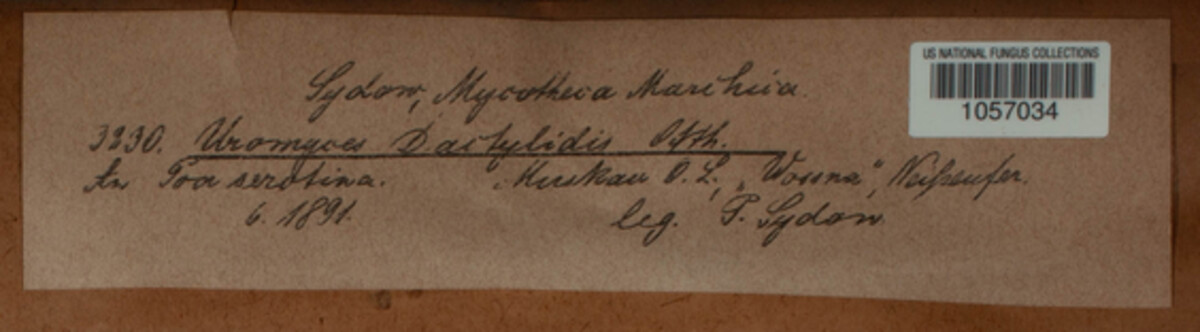 US NATIONAL FUNGUS COLLECTIONS
1057034
Sydow, Mycotheca Marchica.
3230. Uromyces Dactylidis Otth.
An Poa serotina. Muskau O. L., Neißeufer.
6. 1891. leg. P. Sydow